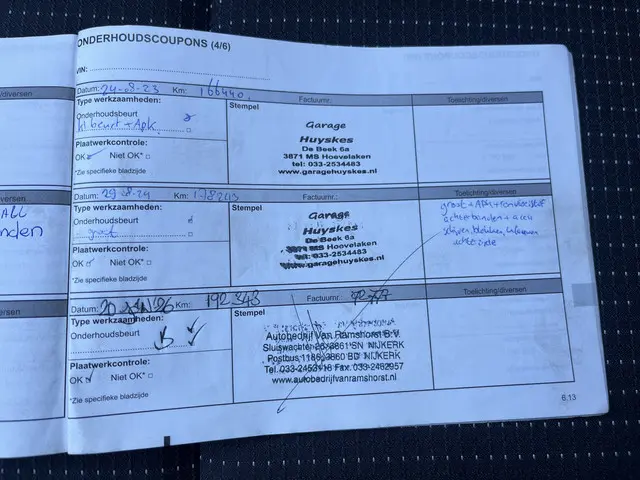 ONDERHOUDSCOUPONS (4/6)
VIN:
/diversen
Datum: 24-08-23 Km: 166440 Factuurnr.: Toelichting/diversen
Type werkzaamheden:
Onderhoudsbeurt
kl beurt + Apk
Plaatwerkcontrole:
OK Niet OK*
*Zie specifieke bladzijde
Stempel
Garage
Huyskes
De Beek 6a
3871 MS Hoevelaken
tel: 033-2534483
www.garagehuyskes.nl
/diversen
ALL
anden
Datum: 29-08-24 Km: 178243 Factuurnr.: Toelichting/diversen
Type werkzaamheden:
Onderhoudsbeurt
groot
Plaatwerkcontrole:
OK Niet OK*
*Zie specifieke bladzijde
Stempel
Garage
Huyskes
De Beek 6a
3871 MS Hoevelaken
tel: 033-2534483
www.garagehuyskes.nl
groot + APK + remvloeistof
achterbanden + accu
schijven, blokken,
achterzijde
/diversen
Datum: 20 Km: 192.343 Factuurnr.: Toelichting/diversen
Type werkzaamheden:
Onderhoudsbeurt
Plaatwerkcontrole:
OK Niet OK*
*Zie specifieke bladzijde
Stempel
Autobedrijf Van Ramshorst B.V.
Sluiswachter 20 3861 SN NIJKERK
Postbus 1186, 3860 BD NIJKERK
Tel. 033-2453118 Fax. 033-2462957
www.autobedrijfvanramshorst.nl
6.13